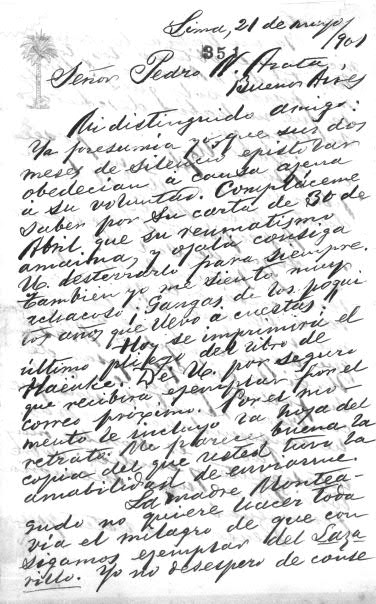 Lima, 21 de mayo/
1901
351
Señor Pedro N. Arata,
Buenos Aires
Mi distinguido amigo:
Ya presumía yo que sus dos
meses de silencio epistolar
obedecían á causa ajena
á su voluntad. Compláceme
saber por su carta de 30 de
Abril que su reumatismo
amaina, y ojalá consiga
U. desterrarlo para siempre.
También yo me siento muy
achacoso! Gangas de los poqui
tos años que llevo a cuestas!
Hoy se imprimirá el
último pliego del libro de
Haenke. Dé U. por seguro
que recibirá ejemplar por el
correo próximo. Por el mo-
mento le incluyo la hoja del
retrato. Me parece buena la
copia del que usted tuvo la
amabilidad de enviarme.
La madre Montea-
gudo no quiere hacer toda
vía el milagro de que con
sigamos ejemplar del Laza-
rillo. Yo no desespero de conse